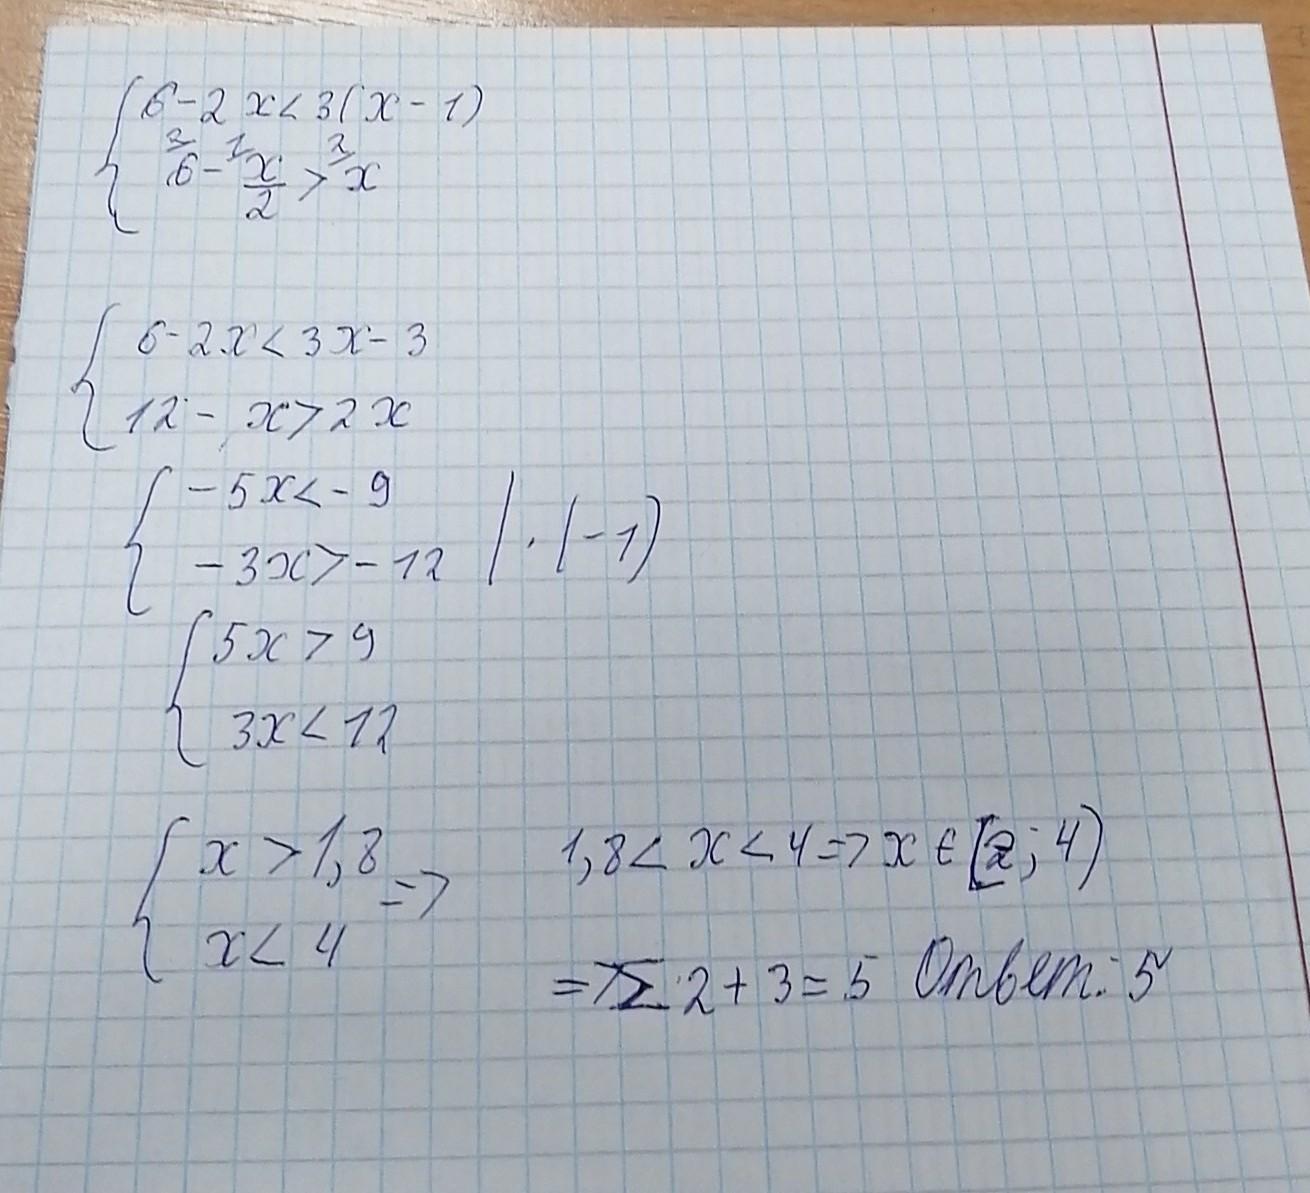 6 - 2x < 3(x - 1)
2 1 2
6 - x/2 > x
6 - 2x < 3x - 3
12 - x > 2x
-5x < -9
-3x > -12 | · (-1)
5x > 9
3x < 12
x > 1,8 => 1,8 < x < 4 => x ∈ [2; 4)
x < 4
=> Σ 2 + 3 = 5 Ответ: 5